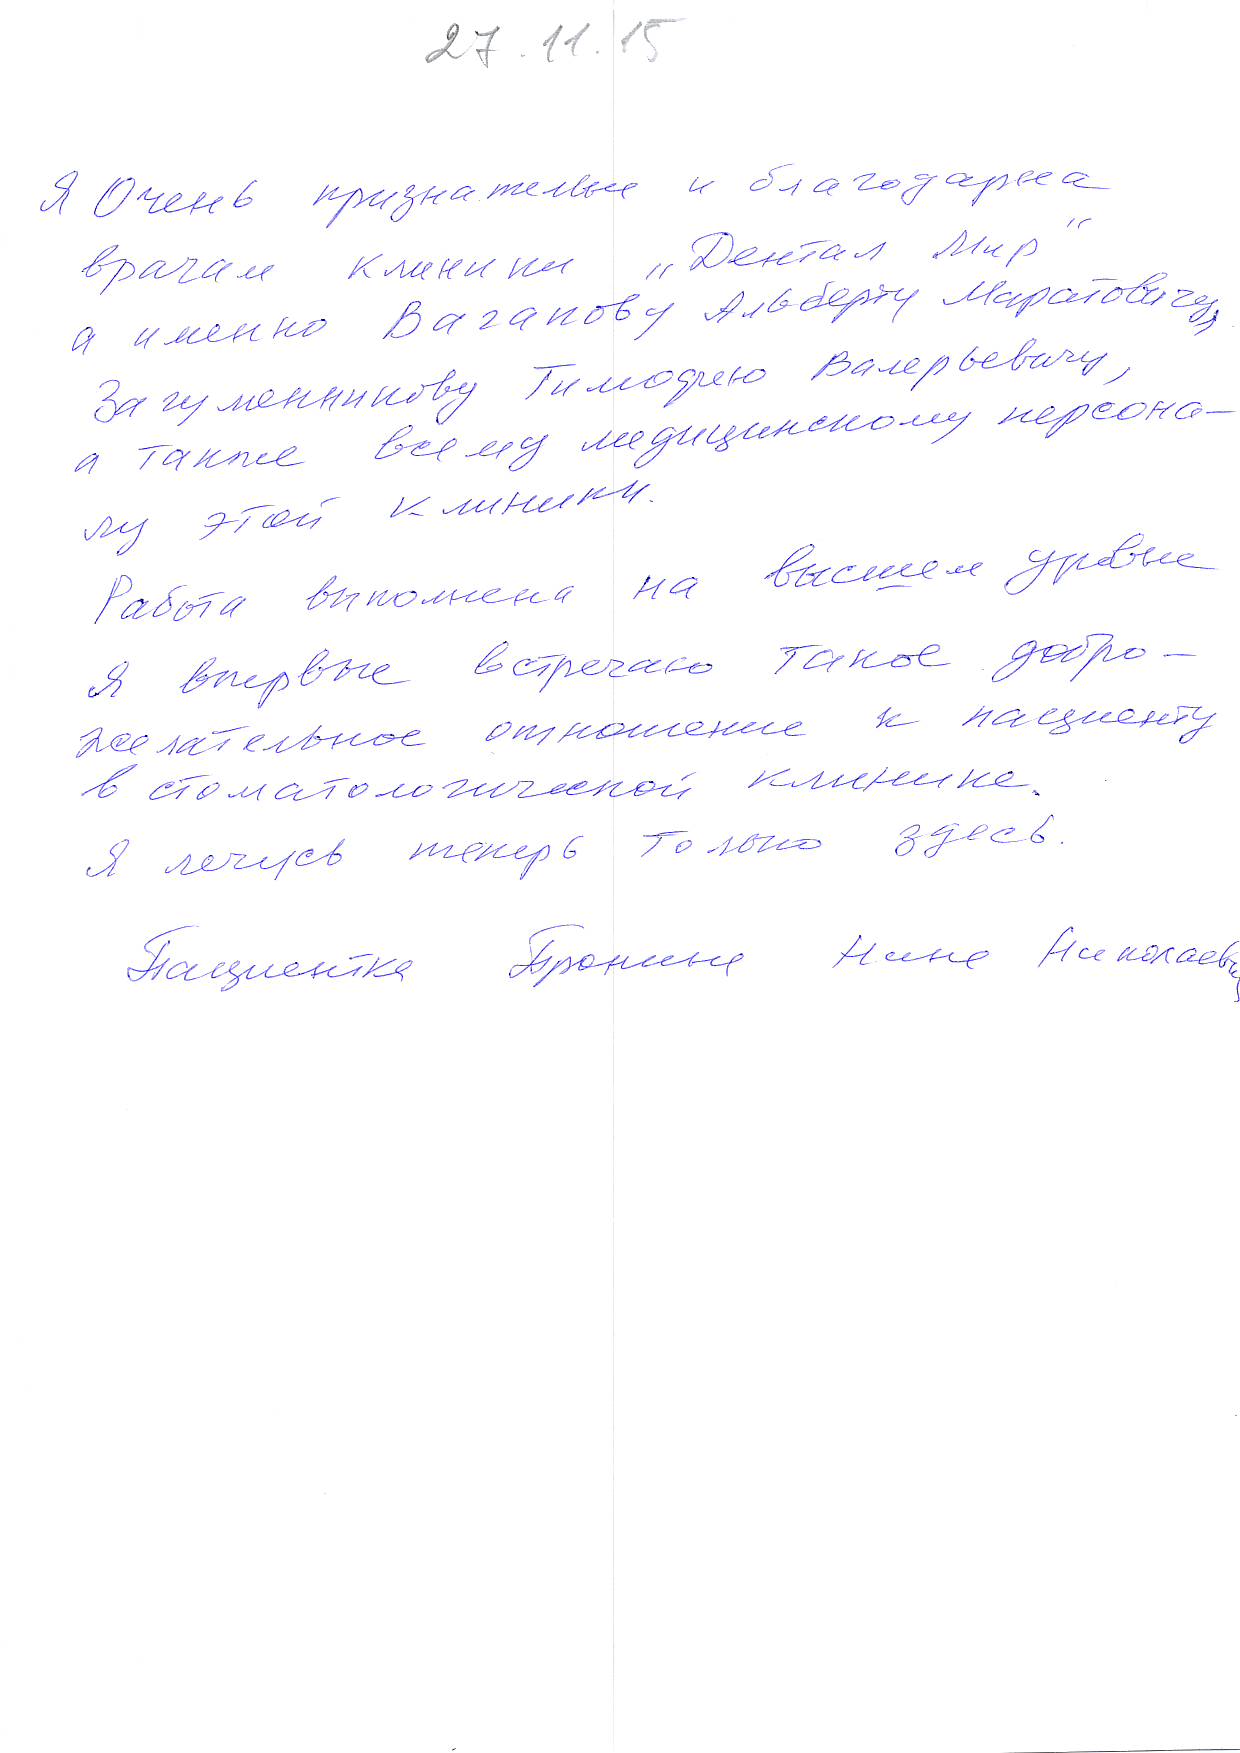 27.11.15
Я Очень признательна и благодарна
врачам клиники „Дентал Мир“
а именно Вагапову Альберту Маратовичу,
Загуменникову Тимофею Валерьевичу,
а также всему медицинскому персона-
лу этой клиники.
Работа выполнена на высшем уровне
Я впервые встречаю такое добро-
желательное отношение к пациенту
в стоматологической клинике.
Я лечусь теперь только здесь.
Пациентка Пронина Нина Николаевна